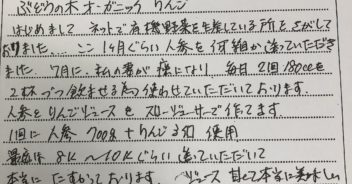 ぶどうの木オーガニック りんご
はじめまして ネットで有機野菜を生産している所をさがして
おりました。ここ1ヶ月ぐらい人参を何箱か送っていただき
ました。7月に、私の妻が癌になり 毎日2回180ccを
2杯づつ飲ませる為使わせていただいております。
人参とりんごジュースをスロージューサーで作てます。
1回に人参700g+りんご3ヶ使用
8K〜10Kぐらい送っていただいて
本当にたすかっております。ジュース 甘くて本当に美味しい